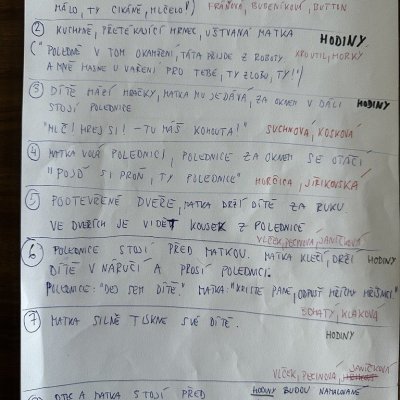 MÁLO, TY CIKÁNE, MLČELO" FRÁŇOVÁ, BUDENÍKOVÁ, BUTTON
② KUCHYNĚ, PŘETÉKAJÍCÍ HRNEC, UŠTVANÁ MATKA HODINY
("POLEDNE V TOM OKAMŽENÍ, TÁTA PŘIJDE Z ROBOTY KROUTIL, HORKÝ
A MNĚ HASNE U VAŘENÍ PRO TEBE, TY ZLOBO, TY!")
③ DÍTĚ HRAČKY, MATKA MU JE DÁVÁ, ZA OKNEM V DÁLI HODINY
STOJÍ POLEDNICE
"MLČ! HREJ SI! - TU MÁŠ KOHOUTA!" SUCHNOVÁ, KOSKOVÁ
④ MATKA VOLÁ POLEDNICI, POLEDNICE ZA OKNEM SE OTÁČÍ
"POJĎ SI PROŇ, TY POLEDNICE" HORČICA, JIŘIKOVSKÁ
⑤ POOTEVŘENÉ DVEŘE, MATKA DRŽÍ DÍTĚ ZA RUKU.
VE DVEŘÍCH JE VIDĚT KOUSEK Z POLEDNICE
VLČEK, PECINOVÁ, JANÍČKOVÁ
⑥ POLEDNICE STOJÍ PŘED MATKOU. MATKA KLEČÍ, DRŽÍ HODINY
DÍTĚ V NÁRUČÍ A PROSÍ POLEDNICI.
POLEDNICE: "DEJ SEM DÍTĚ." MATKA: "KRISTE PANE, ODPUSŤ HŘÍCHY HŘÍŠNICI."
BOHATÝ, KLAKOVÁ
⑦ MATKA SILNĚ TISKNE SVÉ DÍTĚ.
HODINY
JANÍČKOVÁ
VLČEK, PECINOVÁ,
A MATKA STOJÍ PŘED HODINY BUDOU NAMALOVANÉ